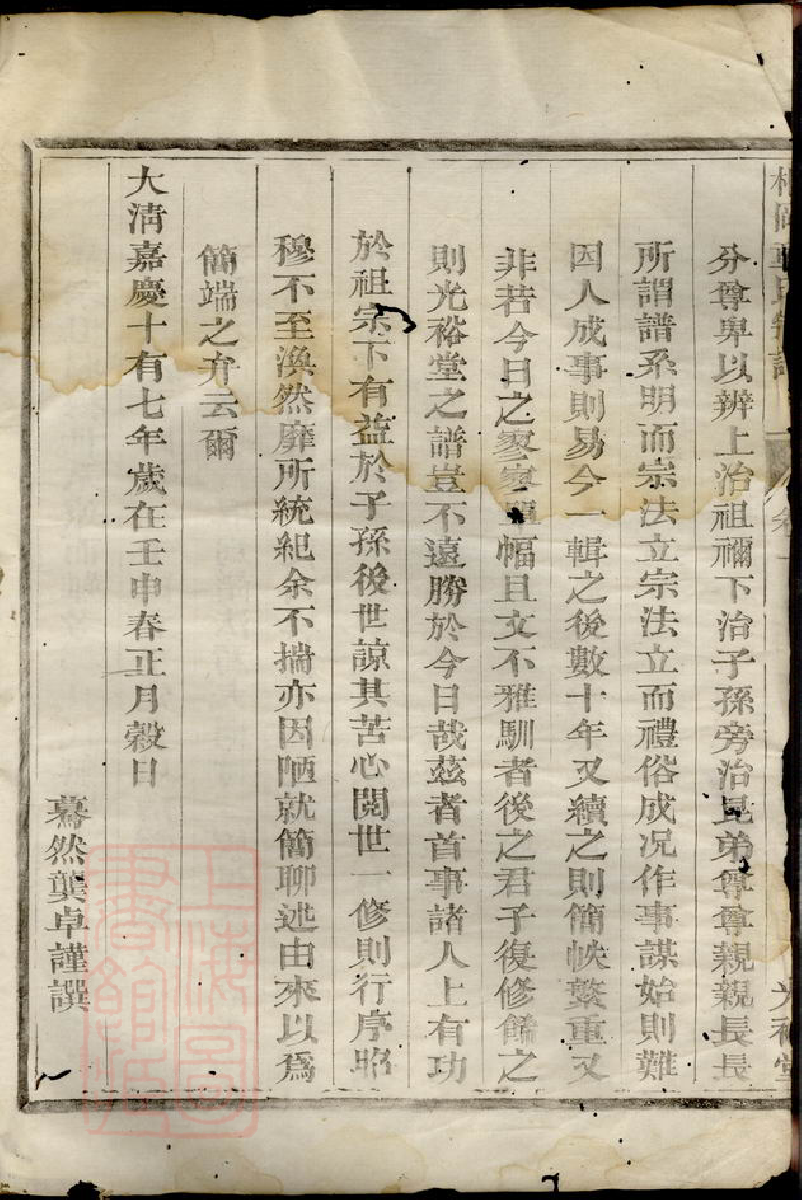 分尊卑以辨上治祖禰下治子孫旁治昆弟尊尊親親長長
所謂譜系明而宗法立宗法立而禮俗成况作事謀始則難
因人成事則易今一輯之後數十年又續之則簡帙繁重又
非若今日之寥寥單幅且文不雅馴者後之君子復修餙之
則光裕堂之譜豈不遠勝於今日哉茲者首事諸人上有功
於祖宗下有益於子孫後世諒其苦心閱世一修則行序昭
穆不至渙然靡所統紀余不揣亦因陋就簡聊述由來以爲
簡端之弁云爾
大清嘉慶十有七年歲在壬申春正月榖日
驀然龔卓謹譔
上海圖
書館藏